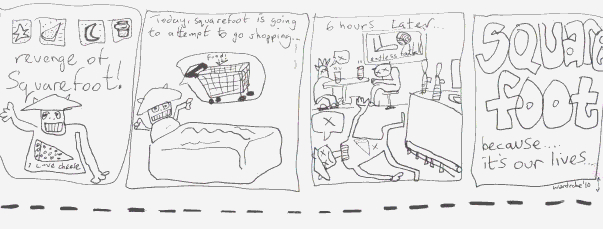 revenge of
Squarefoot!
I Love cheese
Today, squarefoot is going
to attempt to go shopping...
food!
6 hours Later...
endless
X
X
SQUARE
FOOT
because....
it's our lives...